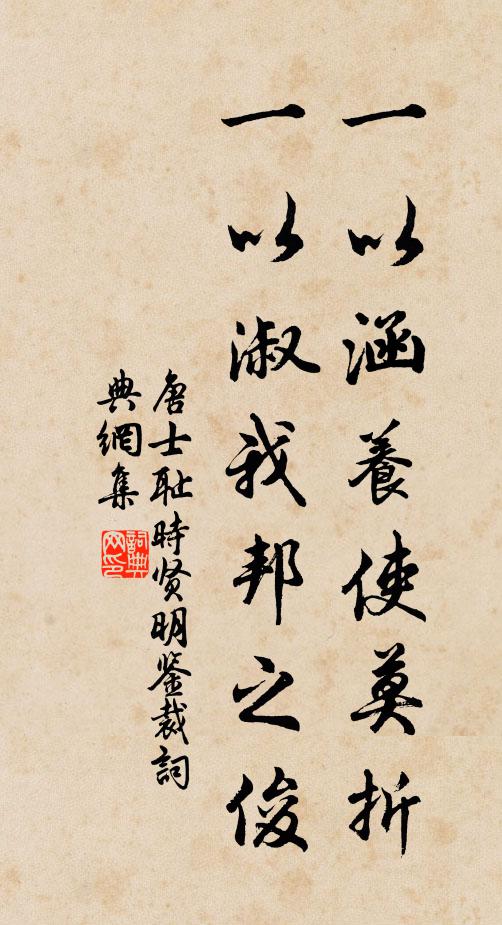 一以涵養使莫折
一以淑我邦之俊
唐士耻時贤明鉴裁詞
典網集
詞典网印